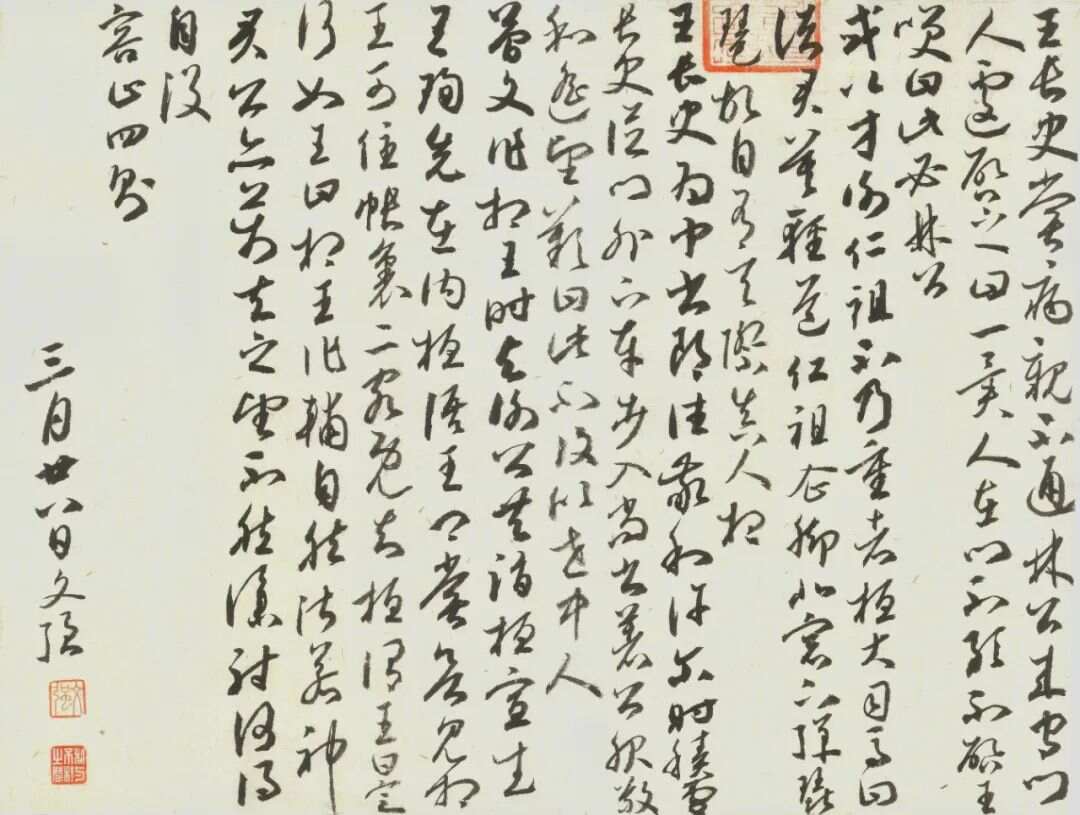 王長史嘗病親不通林公來守門
人遽啟之曰一異人在門不敢不啟王
笑曰此必林公
或以方謝仁祖不乃重者桓大司馬曰
諸君莫輕道仁祖企腳北窗下彈琵
琶故自有天際真人想
王長史為中書郎往敬和許爾時積雪
長史從門外下車步入尚書著公服敬
和遙望歎曰此不復似世中人
簡文作相王時與謝公共詣桓宣武
王珣先在內桓語王卿嘗欲見相
王可住帳裏二客既去桓謂王曰定
何如王曰相王作輔自然湛若神
君公亦萬夫之望不然僕射何得
自沒
容止四則
三月廿八日文強
文強